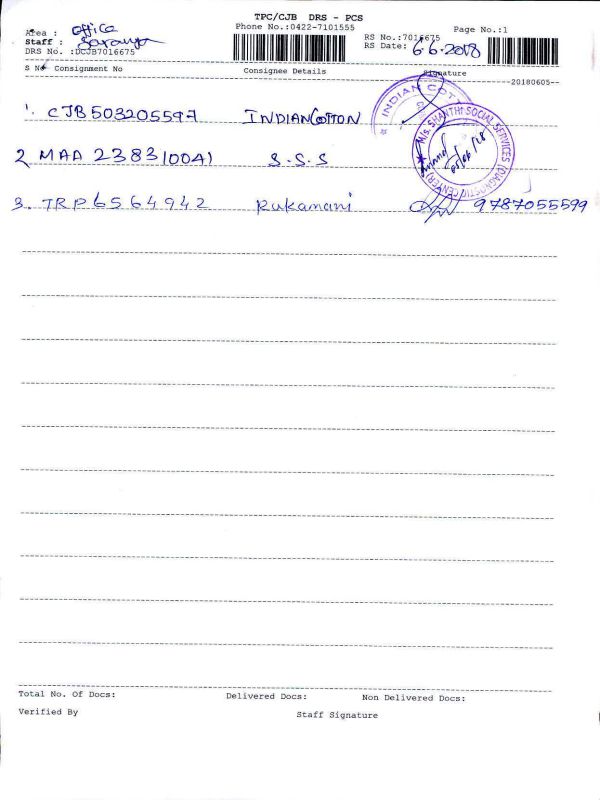 TPC/CJB DRS - PCS
Area : Office
Phone No.:0422-7101555
Page No.:1
Staff : Saranya
RS No.:7016675
DRS No. :DCJB7016675
RS Date: 6-6-2018
S No Consignment No Consignee Details Signature
20180605
1. CJB503205597 INDIAN COTTON
INDIAN COT
M/s. SHANTHI SOCIAL SERVICES (DIAGNOSTIC CENTER)
2 MAA 238310041 S.S.S
3. TRP6564942 Rukamani 9787055599
Total No. Of Docs: Delivered Docs: Non Delivered Docs:
Verified By Staff Signature